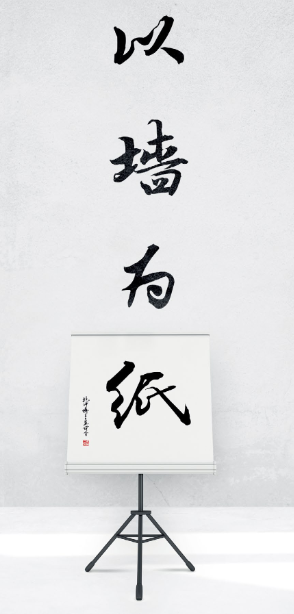 以墙为纸